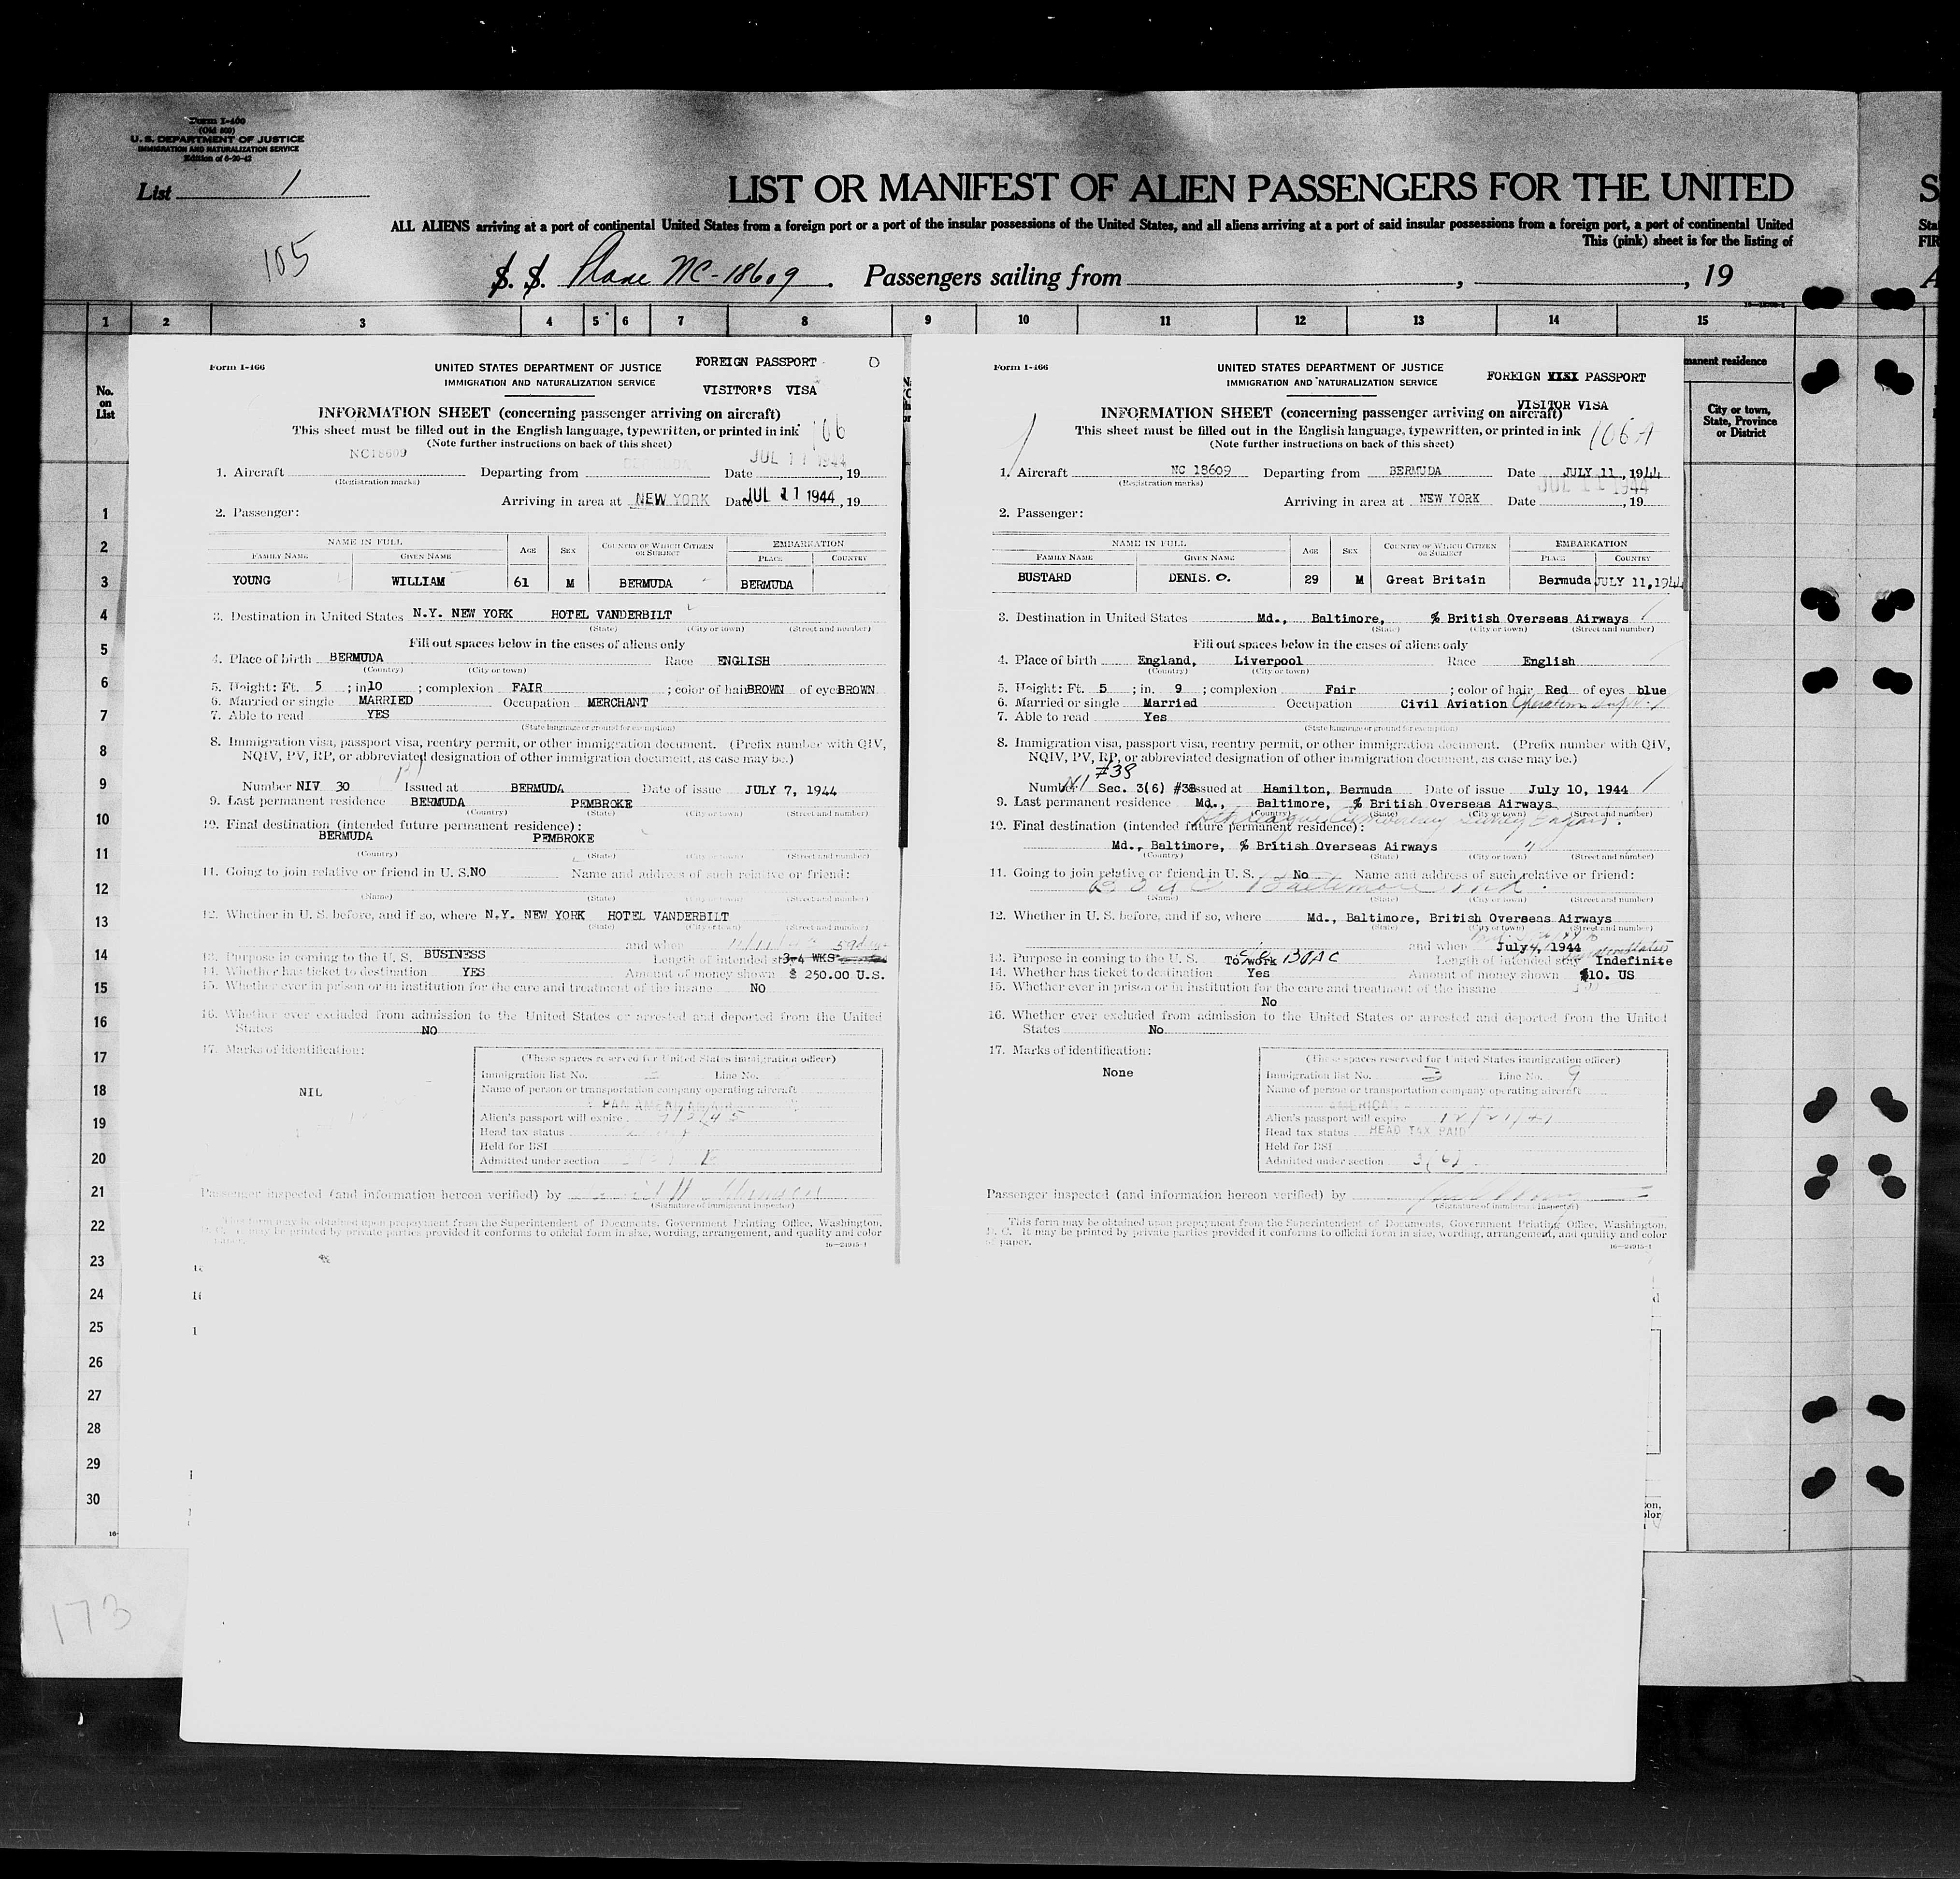 Form I-460
(Old 500)
U. S. DEPARTMENT OF JUSTICE
IMMIGRATION AND NATURALIZATION SERVICE
Edition of 6-20-42
List 1
LIST OR MANIFEST OF ALIEN PASSENGERS FOR THE UNITED
ALL ALIENS arriving at a port of continental United States from a foreign port or a port of the insular possessions of the United States, and all aliens arriving at a port of said insular possessions from a foreign port, a port of continental United
This (pink) sheet is for the listing of
105
S. S. Plane NC-18609. Passengers sailing from , , 19
1 2 3 4 5 6 7 8 9 10 11 12 13 14 15
No. on List
manent residence
City or town, State, Province or District
1
2
3
4
5
6
7
8
9
10
11
12
13
14
15
16
17
18
19
20
21
22
23
24
25
26
27
28
29
30
173
Form I-466
UNITED STATES DEPARTMENT OF JUSTICE
IMMIGRATION AND NATURALIZATION SERVICE
FOREIGN PASSPORT
VISITOR'S VISA
INFORMATION SHEET (concerning passenger arriving on aircraft)
This sheet must be filled out in the English language, typewritten, or printed in ink
(Note further instructions on back of this sheet)
106
1. Aircraft NC18609 Departing from BERMUDA Date JUL 11 1944, 19
(Registration marks)
Arriving in area at NEW YORK Date JUL 11 1944, 19
2. Passenger:
NAME IN FULL AGE SEX COUNTRY OF WHICH CITIZEN OR SUBJECT EMBARKATION
FAMILY NAME GIVEN NAME PLACE COUNTRY
YOUNG WILLIAM 61 M BERMUDA BERMUDA
3. Destination in United States N.Y. NEW YORK HOTEL VANDERBILT
(State) (City or town) (Street and number)
Fill out spaces below in the cases of aliens only
4. Place of birth BERMUDA Race ENGLISH
(Country) (City or town)
5. Height: Ft. 5 ; in. 10 ; complexion FAIR ; color of hair BROWN of eyes BROWN
6. Married or single MARRIED Occupation MERCHANT
7. Able to read YES
(State language or ground for exemption)
8. Immigration visa, passport visa, reentry permit, or other immigration document. (Prefix number with QIV,
NQIV, PV, RP, or abbreviated designation of other immigration document, as case may be.)
Number NIV 30 Issued at BERMUDA Date of issue JULY 7, 1944
9. Last permanent residence BERMUDA PEMBROKE
(Country) (State) (City or town) (Street and number)
10. Final destination (intended future permanent residence):
BERMUDA PEMBROKE
(Country) (State) (City or town) (Street and number)
11. Going to join relative or friend in U. S. NO Name and address of such relative or friend:
(Name) (State) (City or town) (Street and number)
12. Whether in U. S. before, and if so, where N.Y. NEW YORK HOTEL VANDERBILT
(State) (City or town) (Street and number)
and when
13. Purpose in coming to the U. S. BUSINESS Length of intended stay 3-4 WKS
14. Whether has ticket to destination YES Amount of money shown $ 250.00 U.S.
15. Whether ever in prison or in institution for the care and treatment of the insane NO
16. Whether ever excluded from admission to the United States or arrested and deported from the United
States NO
17. Marks of identification:
NIL
(These spaces reserved for United States immigration officer)
Immigration list No. Line No.
Name of person or transportation company operating aircraft
PAN AMERICAN
Alien's passport will expire
Head tax status
Held for BSI
Admitted under section
Passenger inspected (and information hereon verified) by
(Signature of immigrant inspector)
This form may be obtained upon prepayment from the Superintendent of Documents, Government Printing Office, Washington,
D. C. It may be printed by private parties provided it conforms to official form in size, wording, arrangement, and quality and color
of paper.
16—24915-1
Form I-466
UNITED STATES DEPARTMENT OF JUSTICE
IMMIGRATION AND NATURALIZATION SERVICE
FOREIGN PASSPORT
VISITOR VISA
INFORMATION SHEET (concerning passenger arriving on aircraft)
This sheet must be filled out in the English language, typewritten, or printed in ink
(Note further instructions on back of this sheet)
106A
1. Aircraft NC 18609 Departing from BERMUDA Date JULY 11, 1944
(Registration marks)
JUL 11 1944
Arriving in area at NEW YORK Date , 19
2. Passenger:
NAME IN FULL AGE SEX COUNTRY OF WHICH CITIZEN OR SUBJECT EMBARKATION
FAMILY NAME GIVEN NAME PLACE COUNTRY
BUSTARD DENIS. O. 29 M Great Britain Bermuda JULY 11, 1944
3. Destination in United States Md., Baltimore, % British Overseas Airways
(State) (City or town) (Street and number)
Fill out spaces below in the cases of aliens only
4. Place of birth England, Liverpool Race English
(Country) (City or town)
5. Height: Ft. 5 ; in. 9 ; complexion Fair ; color of hair Red of eyes blue
6. Married or single Married Occupation Civil Aviation
7. Able to read Yes
(State language or ground for exemption)
8. Immigration visa, passport visa, reentry permit, or other immigration document. (Prefix number with QIV,
NQIV, PV, RP, or abbreviated designation of other immigration document, as case may be.)
#38
Number Sec. 3(6) #38 Issued at Hamilton, Bermuda Date of issue July 10, 1944
9. Last permanent residence Md., Baltimore, % British Overseas Airways
(Country) (State) (City or town) (Street and number)
10. Final destination (intended future permanent residence):
Md., Baltimore, % British Overseas Airways
(Country) (State) (City or town) (Street and number)
11. Going to join relative or friend in U. S. No Name and address of such relative or friend:
BOAC Baltimore Md.
(Name) (State) (City or town) (Street and number)
12. Whether in U. S. before, and if so, where Md., Baltimore, British Overseas Airways
(State) (City or town) (Street and number)
and when July 4, 1944
13. Purpose in coming to the U. S. To work BOAC Length of intended stay Indefinite
14. Whether has ticket to destination Yes Amount of money shown $10. US
15. Whether ever in prison or in institution for the care and treatment of the insane
No
16. Whether ever excluded from admission to the United States or arrested and deported from the United
States No
17. Marks of identification:
None
(These spaces reserved for United States immigration officer)
Immigration list No. 3 Line No. 9
Name of person or transportation company operating aircraft
AMERICAN
Alien's passport will expire
Head tax status HEAD TAX PAID
Held for BSI
Admitted under section 3(6)
Passenger inspected (and information hereon verified) by
(Signature of immigrant inspector)
This form may be obtained upon prepayment from the Superintendent of Documents, Government Printing Office, Washington,
D. C. It may be printed by private parties provided it conforms to official form in size, wording, arrangement, and quality and color
of paper.
16—24915-1